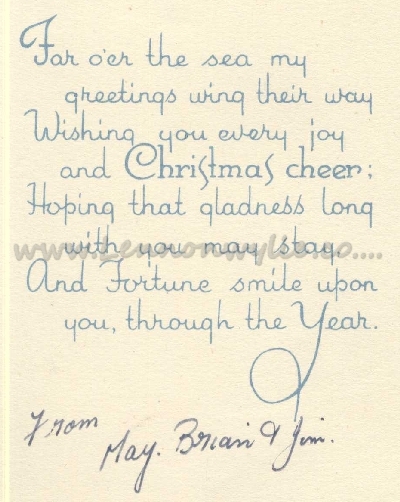 Far o'er the sea my
greetings wing their way
Wishing you every joy
and Christmas cheer;
Hoping that gladness long
with you may stay.
And Fortune smile upon
you, through the Year.
From
May. Brian & Jim.